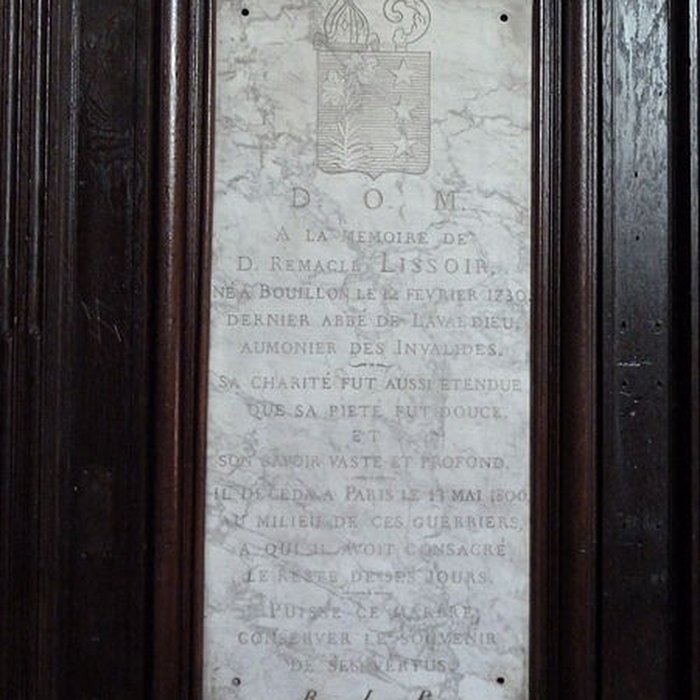 D. O. M.
A LA MEMOIRE DE
D. REMACLE LISSOIR,
NÉ A BOUILLON LE 12 FEVRIER 1730,
DERNIER ABBÉ DE LAVALDIEU,
AUMONIER DES INVALIDES.
SA CHARITÉ FUT AUSSI ETENDUE
QUE SA PIETÉ FUT DOUCE,
ET
SON SAVOIR VASTE ET PROFOND.
IL DECEDA A PARIS LE 13 MAI 1806
AU MILIEU DE CES GUERRIERS,
A QUI IL AVOIT CONSACRÉ
LE RESTE DE SES JOURS.
PUISSE CE MARBRE
CONSERVER LE SOUVENIR
DE SES VERTUS.